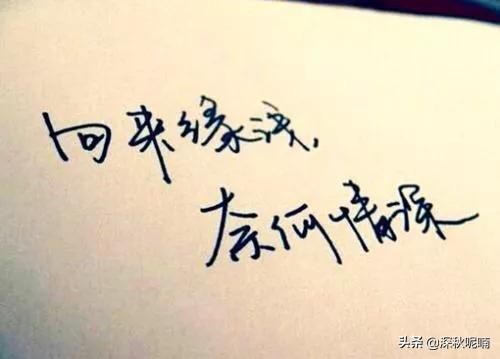 向来缘浅,
奈何情深
头条 @深秋呢喃